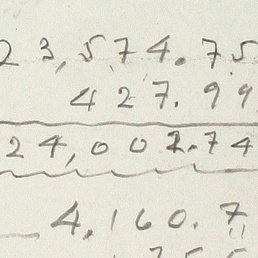 23,574.75
427.99
24,002.74
4,160.7